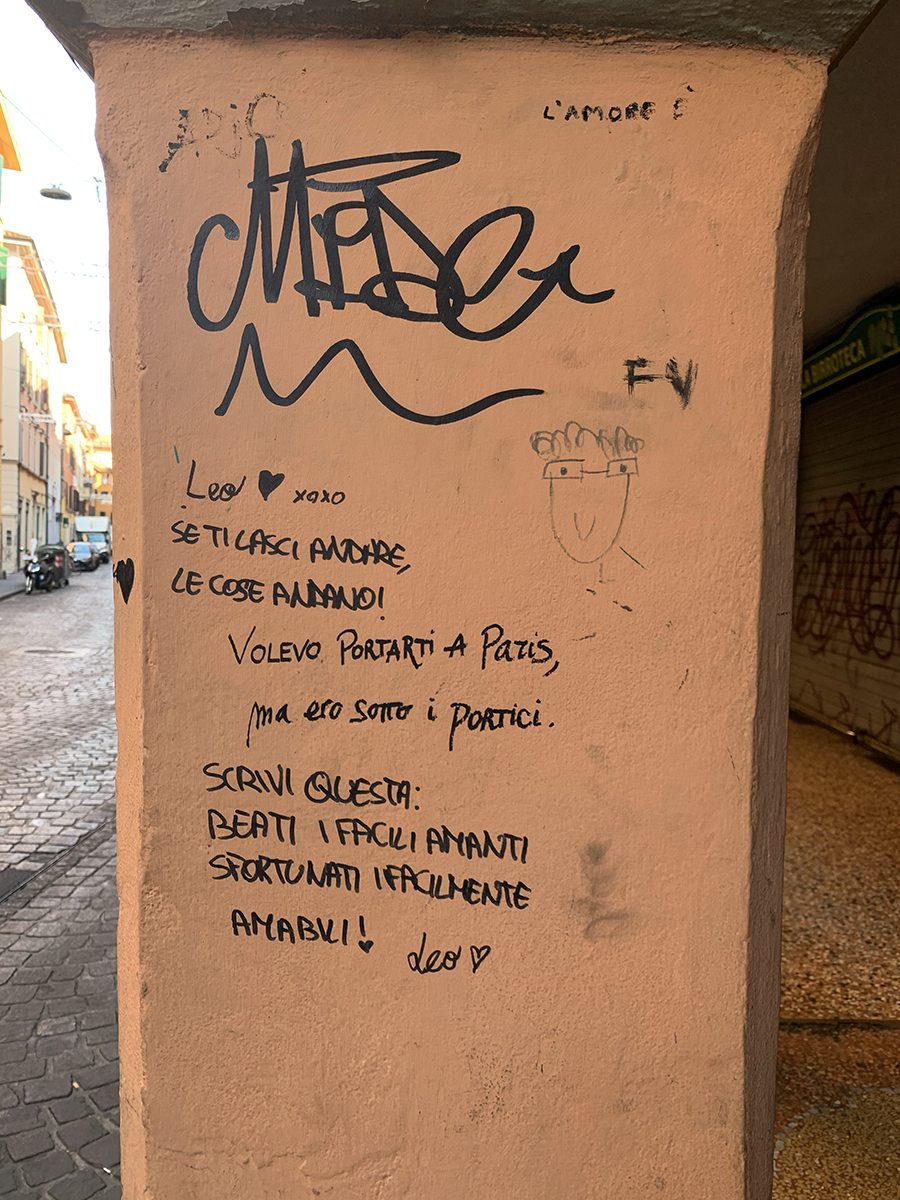 L'AMORE È
FV
Leo ♥ xoxo
SE TI LASCI ANDARE,
LE COSE ANDANO!
VOLEVO PORTARTI A PARIS,
ma ero sotto i PORTICI.
SCRIVI QUESTA:
BEATI I FACILI AMANTI
SFORTUNATI I FACILMENTE
AMABILI!
Leo ♥
LA BIRROTECA